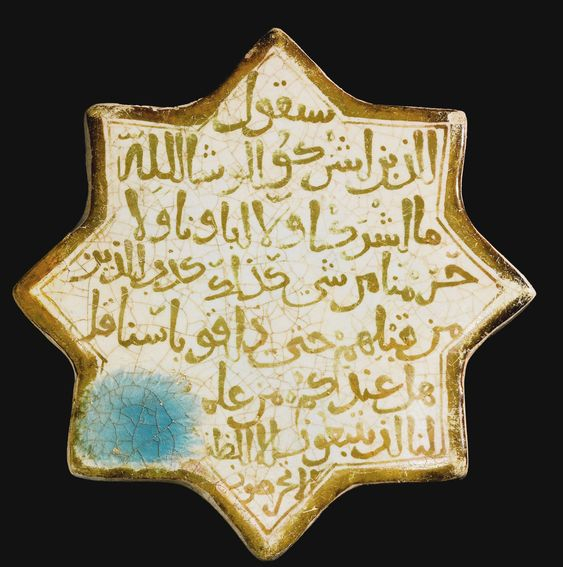 سيقول
الذين اشركوا لو شا الله
ما اشركنا ولا اباونا ولا
حرمنا من شي كذلك كذب الذين
من قبلهم حتى ذاقو باسنا قل
هل عندكم من علم
لنا ان تتبعون الا الظن
الا تخرصون